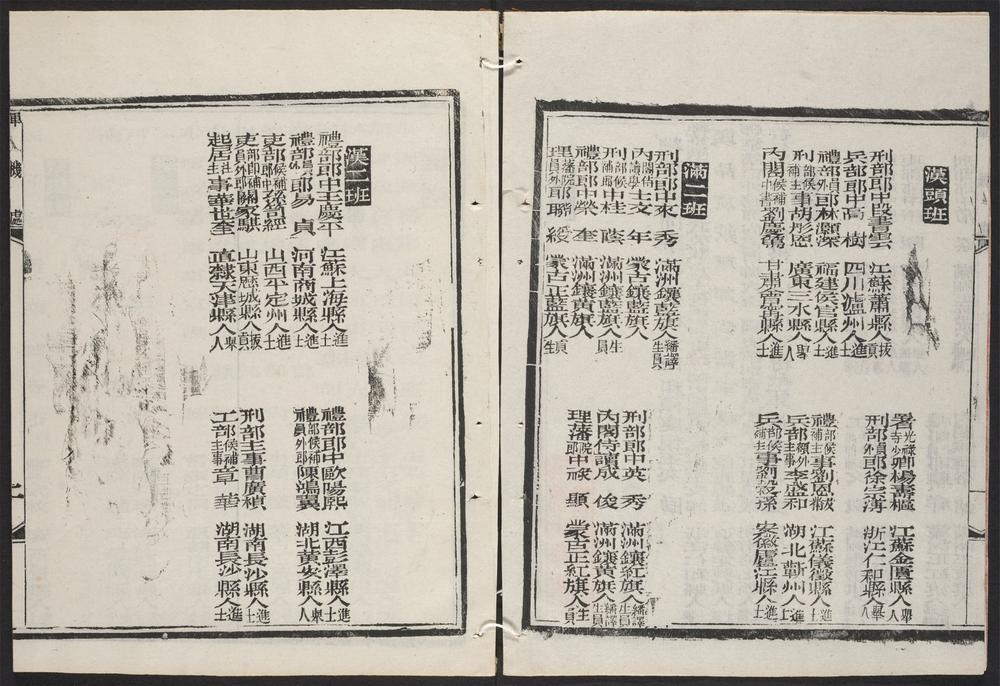 漢頭班
刑部郎中段書雲 江蘇蕭縣人拔貢
兵部郎中高樹 四川瀘州人進士
禮部員外郎林灝深 福建侯官縣人進士
刑部候補主事胡彤恩 廣東三水縣人舉人
內閣候補中書劉慶篤 甘肅會寧縣人進士
署光祿寺少卿楊壽樞 江蘇金匱縣人舉人
刑部員外郎徐宗溥 浙江仁和縣人舉人
禮部候補主事劉恩黻 江蘇儀徵縣人進士
兵部額外主事李盛和 湖北蘄州人
兵部候補主事劉穀孫 安徽廬江縣人進士
滿二班
刑部郎中來秀 滿洲鑲藍旗人繙譯生員
內閣侍讀學士文年 蒙古鑲藍旗人
刑部候補郎中桂蔭 滿洲鑲藍旗人生員
禮部郎中榮奎 滿洲鑲黃旗人
理藩院員外郎聯綬 蒙古正藍旗人生員
刑部郎中英秀 滿洲鑲紅旗人繙譯生員
內閣侍讀成俊 滿洲鑲黃旗人繙譯生員
理藩院郎中祿顯 蒙古正紅旗人生員
漢二班
禮部郎中王慶平 江蘇上海縣人進士
禮部員外郎易貞 河南商城縣人進士
吏部候補郎中孫笥經 山西平定州人進士
吏部候補員外郎關家騄 山東歷城縣人拔貢
起居注主事華世奎 直隸天津縣人舉人
禮部郎中歐陽熙 江西彭澤縣人進士
禮部候補員外郎陳鴻翼 湖北黃安縣人舉人
刑部主事曹廣楨 湖南長沙縣人進士
工部候補主事章華 湖南長沙縣人進士